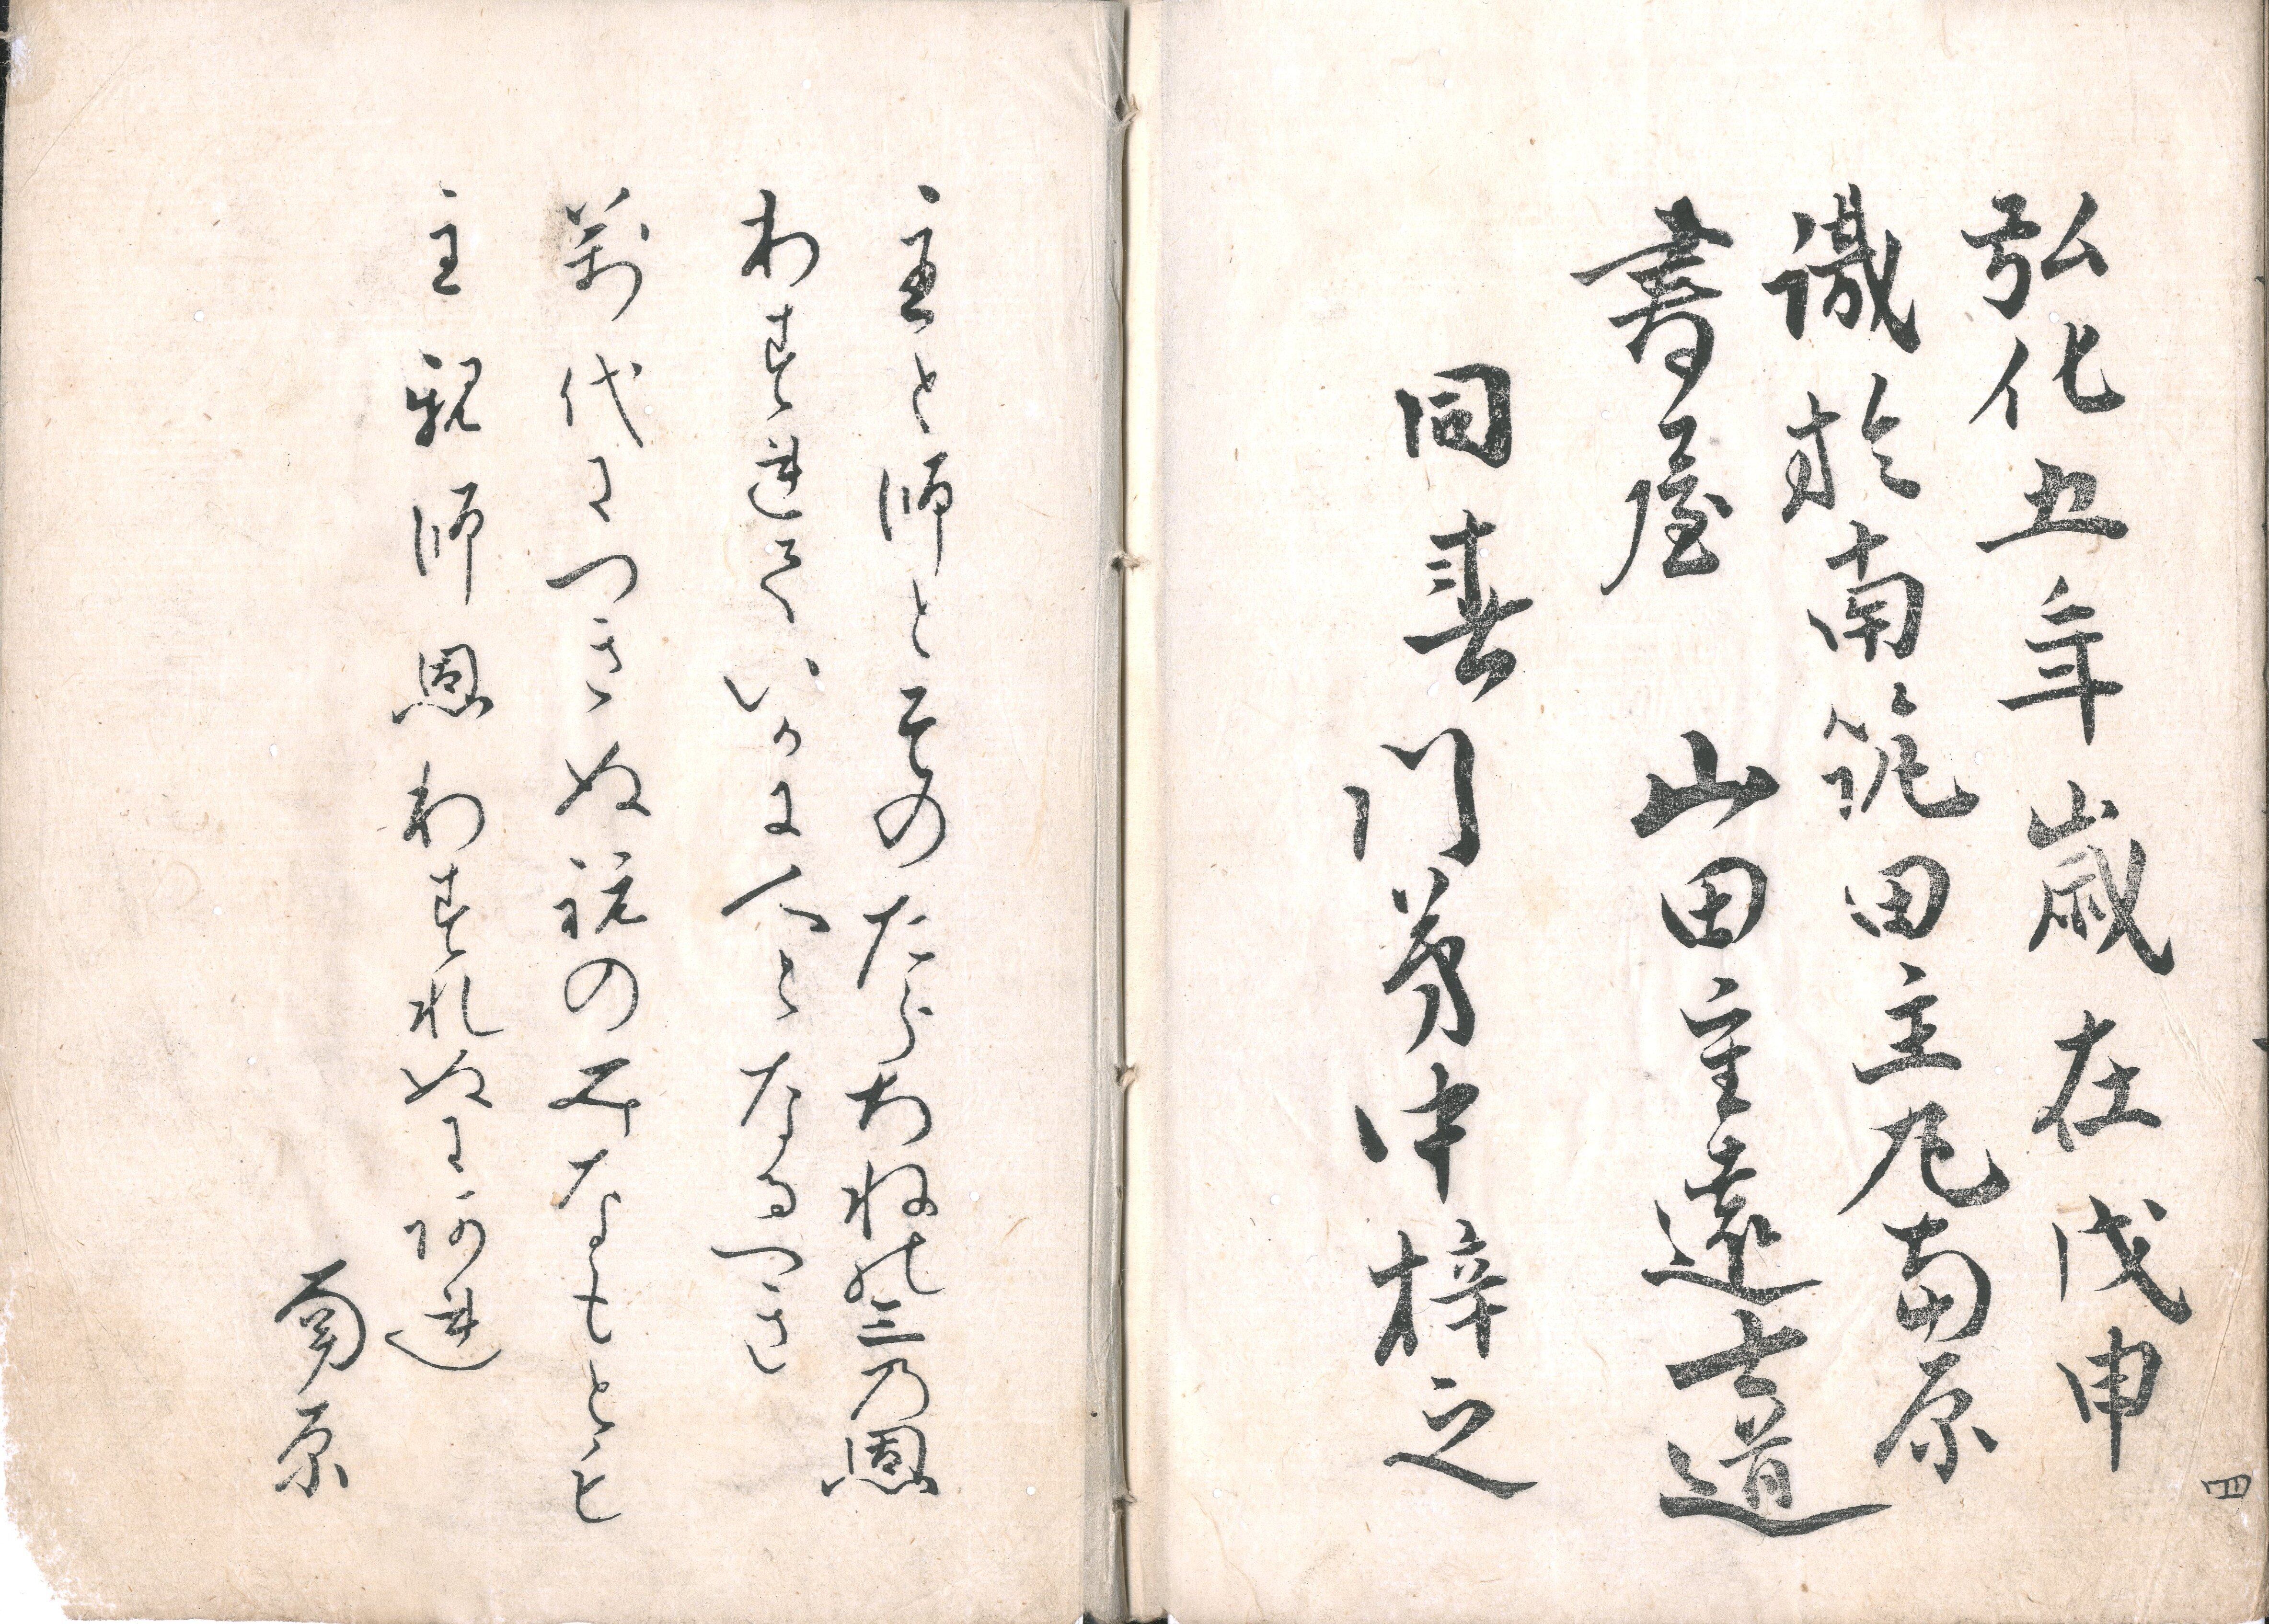 弘化五年歳在戊申
識於南筑田主丸南原
書屋　山田主遠士道
同春門弟中梓之
四
主と師とそのたらちねの三乃恩
わすれていかに人となるへき
萬代につきぬ祝のみなもと
主親師恩わすれぬにあれ
南原